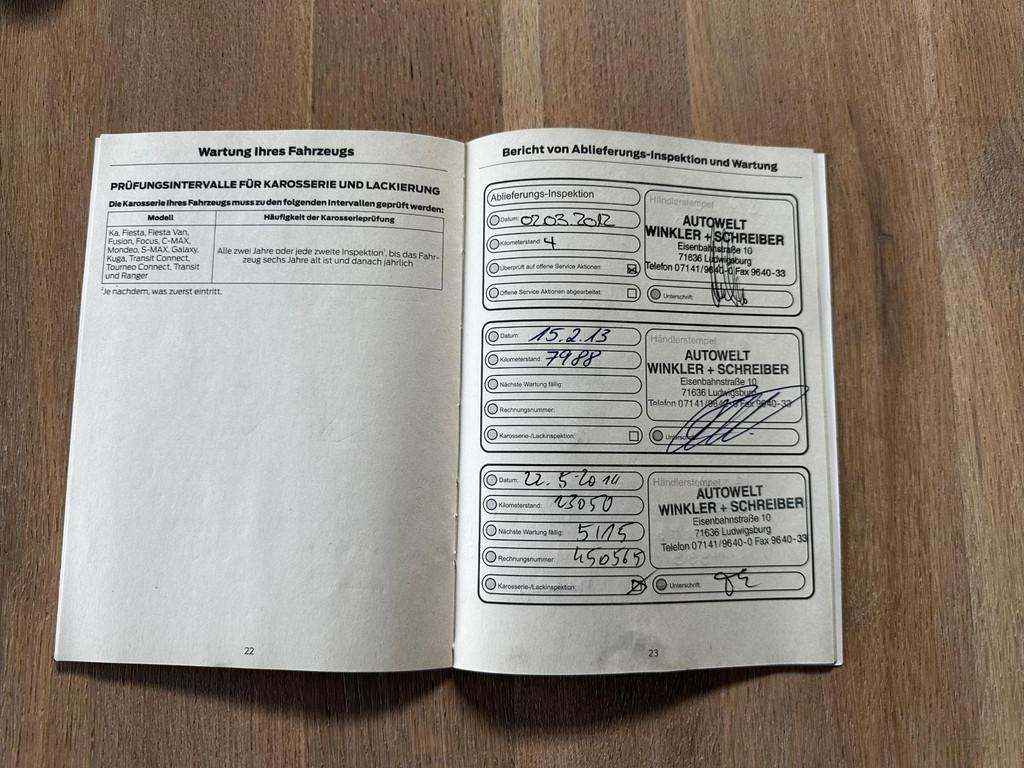 Wartung Ihres Fahrzeugs
PRÜFUNGSINTERVALLE FÜR KAROSSERIE UND LACKIERUNG
Die Karosserie Ihres Fahrzeugs muss zu den folgenden Intervallen geprüft werden:
Modell
Häufigkeit der Karosserieprüfung
Ka, Fiesta, Fiesta Van,
Fusion, Focus, C-MAX,
Mondeo, S-MAX, Galaxy,
Kuga, Transit Connect,
Tourneo Connect, Transit
und Ranger
Alle zwei Jahre oder jede zweite Inspektion¹, bis das Fahr-
zeug sechs Jahre alt ist und danach jährlich
¹Je nachdem, was zuerst eintritt.
22
Bericht von Ablieferungs-Inspektion und Wartung
Ablieferungs-Inspektion
Datum: 02.03.2012
Kilometerstand: 4
Überprüft auf offene Service Aktionen:
Offene Service Aktionen abgearbeitet:
Händlerstempel
AUTOWELT
WINKLER + SCHREIBER
Eisenbahnstraße 10
71636 Ludwigsburg
Telefon 07141/9640-0 Fax 9640-33
Unterschrift:
Datum: 15.2.13
Kilometerstand: 7988
Nächste Wartung fällig:
Rechnungsnummer:
Karosserie-/Lackinspektion:
Händlerstempel
AUTOWELT
WINKLER + SCHREIBER
Eisenbahnstraße 10
71636 Ludwigsburg
Telefon 07141/9640-0 Fax 9640-33
Unterschrift:
Datum: 22.5.2014
Kilometerstand: 23050
Nächste Wartung fällig: 5/15
Rechnungsnummer: 450565
Karosserie-/Lackinspektion:
Händlerstempel
AUTOWELT
WINKLER + SCHREIBER
Eisenbahnstraße 10
71636 Ludwigsburg
Telefon 07141/9640-0 Fax 9640-33
Unterschrift:
23